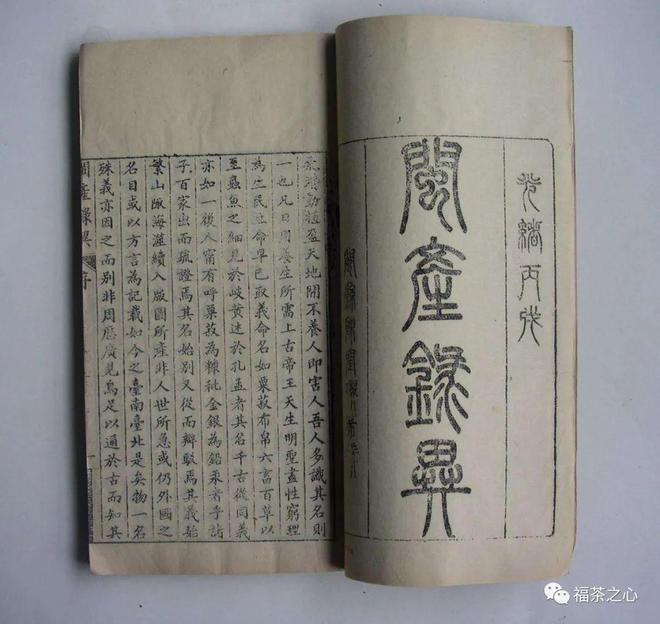 光緒丙戌
閩產錄異
動植盈天地閒不養人即害人吾人多識其名則
一也凡日用養生所需上古帝王天生明聖盡性窮理
為生民立命早已取義命名如粟菽布帛六畜百草以
至蟲魚之細見於岐黃述於孔孟者其名千古從同義
亦如一後人甯有呼粟菽為糠秕金銀為鉛汞者乎諸
子百家出而疏證焉其名始別又從而辨駁焉其義始
繁山陬海澨續入版圖所產非人世所急或仍外國之
名目或以方言為記載如今之臺南臺北是矣物一名
殊義亦因之而別非周歷廣見烏足以通於古而知其
閩產錄異 序
福茶之心